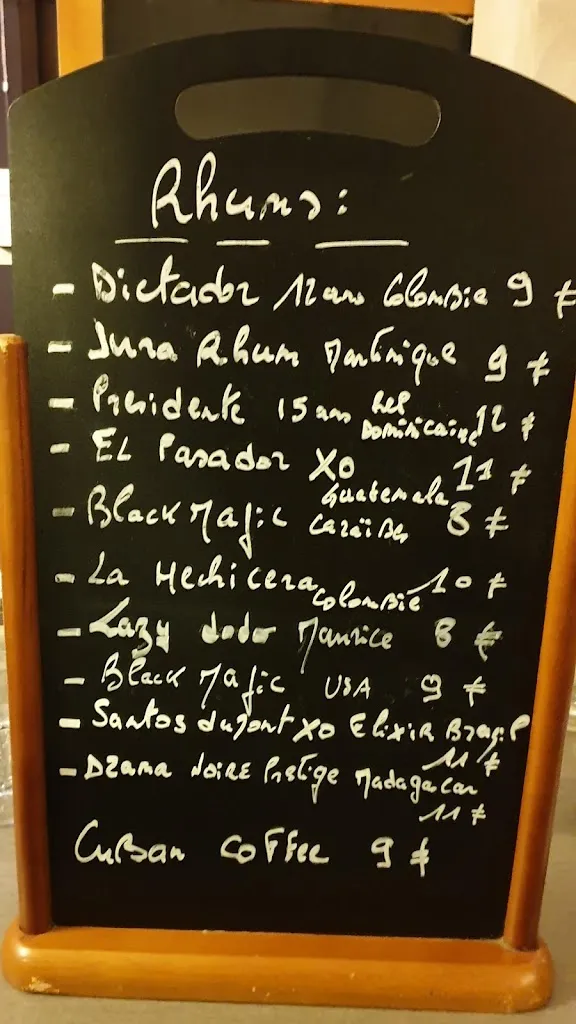 Rhums :
- Dictador 12 ans Colombie 9 €
- Jura Rhum Martinique 9 €
- Presidente 15 ans Rep Dominicaine 12 €
- EL Pasador XO Guatemala 11 €
- Black Magic Caraïbes 8 €
- La Hechicera Colombie 10 €
- Lazy dodo Maurice 8 €
- Black Magic USA 9 €
- Santos dumont XO Elixir Brazil
11 €
- Dzama Noire Prestige Madagacar
11 €
Cuban Coffee 9 €